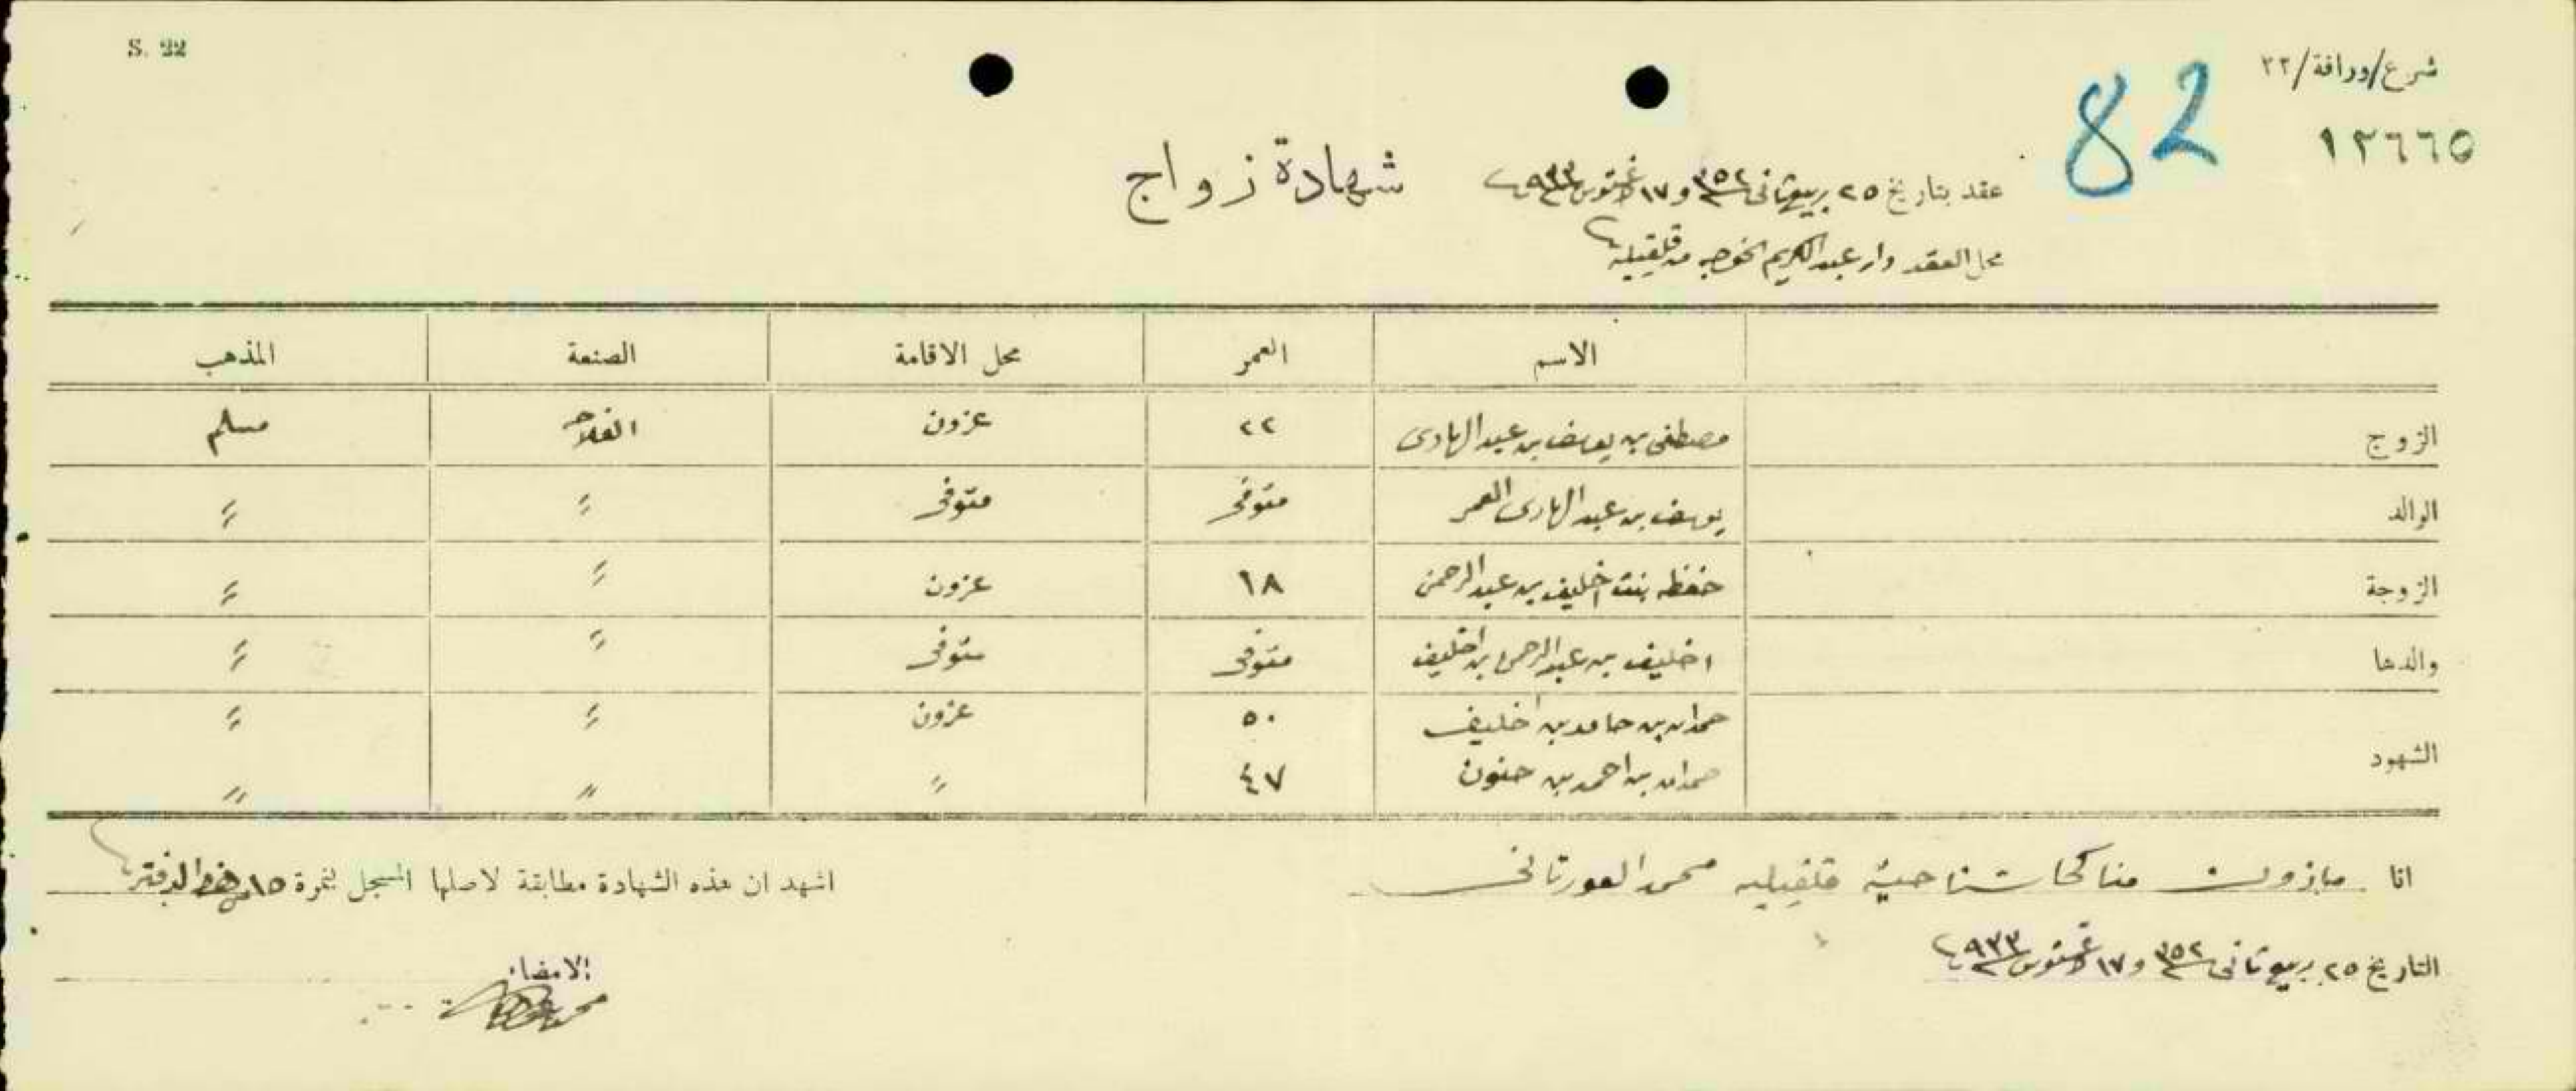 S. 22
شرع/وراقة/٢٢
82
١٢٦٦٥
شهادة زواج
عقد بتاريخ ٢٥ ربيع ثاني ٣٥٢ و ١٧ اغستوس ٩٣٣
محل العقد دار عبدالكريم الخوجه من قلقيليه
الاسم العمر محل الاقامة الصنعة المذهب
الزوج مصطفى بن يوسف بن عبدالهادى ٢٢ عزون الفلاحه مسلم
الوالد يوسف بن عبدالهادى العمر متوفى متوفى 〃 〃
الزوجة حفظه بنت اخليف بن عبدالرحمن ١٨ عزون 〃 〃
والدها اخليف بن عبدالرحمن بن اخليف متوفى متوفى 〃 〃
الشهود حمدان بن حامد بن اخليف ٥٠ عزون 〃 〃
حمدان بن احمد بن حنون ٤٧ 〃 〃 〃
انا مأذون مناكحات ناحية قلقيليه محمد العورتاني
اشهد ان هذه الشهادة مطابقة لاصلها المسجل بنمرة ١٥ من هذا الدفتر
التاريخ ٢٥ ربيع ثاني ٣٥٢ و ١٧ اغستوس ٩٣٣
الامضاء